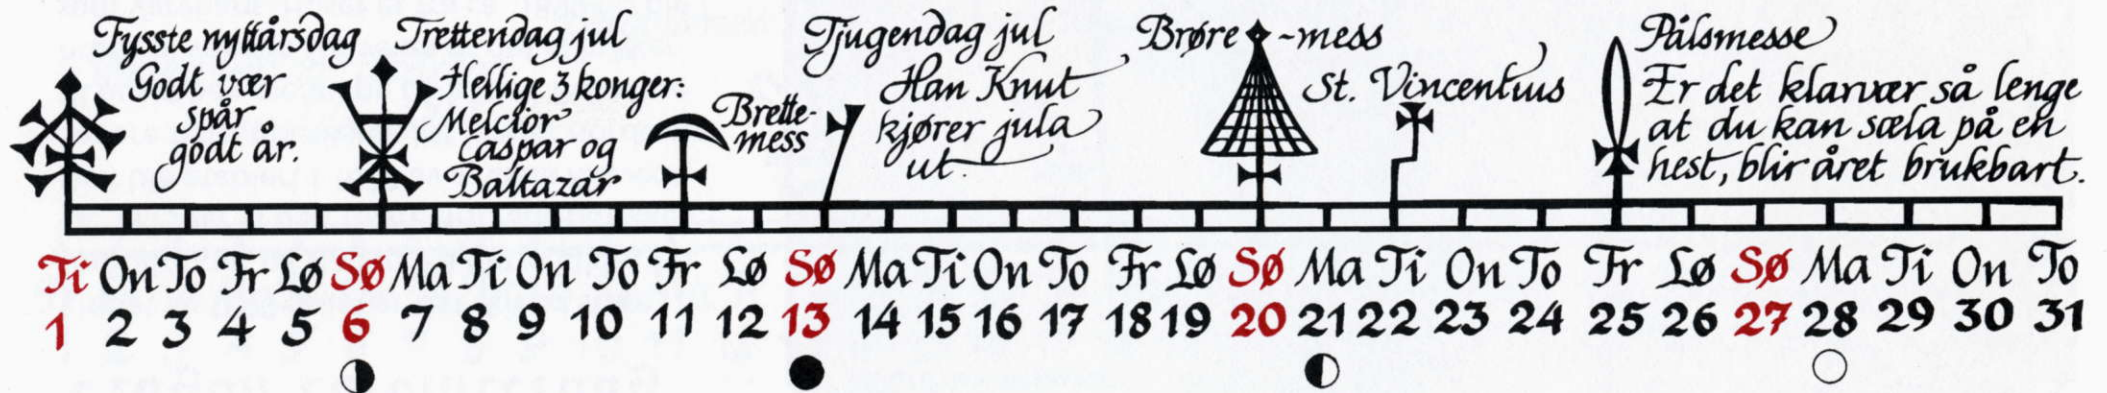 Fysste nyttårsdag
Godt vær
spår
godt år.
Trettendag jul
Hellige 3 konger:
Melcior
Caspar og
Baltazar
Brette-
mess
Tjugendag jul
Han Knut
kjører jula
ut.
Brøre-mess
St. Vincentius
Pålsmesse
Er det klarvær så lenge
at du kan sæla på en
hest, blir året brukbart.
Ti On To Fr Lø Sø Ma Ti On To Fr Lø Sø Ma Ti On To Fr Lø Sø Ma Ti On To Fr Lø Sø Ma Ti On To
1 2 3 4 5 6 7 8 9 10 11 12 13 14 15 16 17 18 19 20 21 22 23 24 25 26 27 28 29 30 31